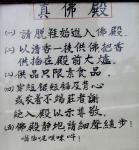 真佛殿
㈠請脫鞋始進入佛殿.
㈡以清香一柱供佛把香
供插在殿前大爐.
㈢供品只限素食品.
㈣穿短裙短褲及意心
或衣著不端莊者謝
絕入殿以示尊敬.
㈤佛殿靜地請細聲緩步!
唵嘛呢叭咪吽!